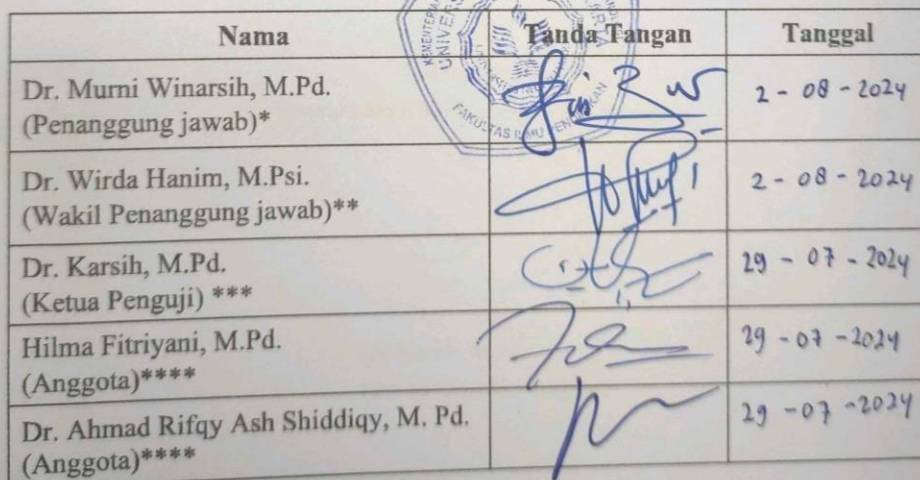 Nama Tanda Tangan Tanggal
Dr. Murni Winarsih, M.Pd.
(Penanggung jawab)* 2 - 08 - 2024
Dr. Wirda Hanim, M.Psi.
(Wakil Penanggung jawab)** 2 - 08 - 2024
Dr. Karsih, M.Pd.
(Ketua Penguji) *** 29 - 07 - 2024
Hilma Fitriyani, M.Pd.
(Anggota)**** 29 - 07 - 2024
Dr. Ahmad Rifqy Ash Shiddiqy, M. Pd.
(Anggota)**** 29 - 07 - 2024
FAKULTAS ILMU PENDIDIKAN